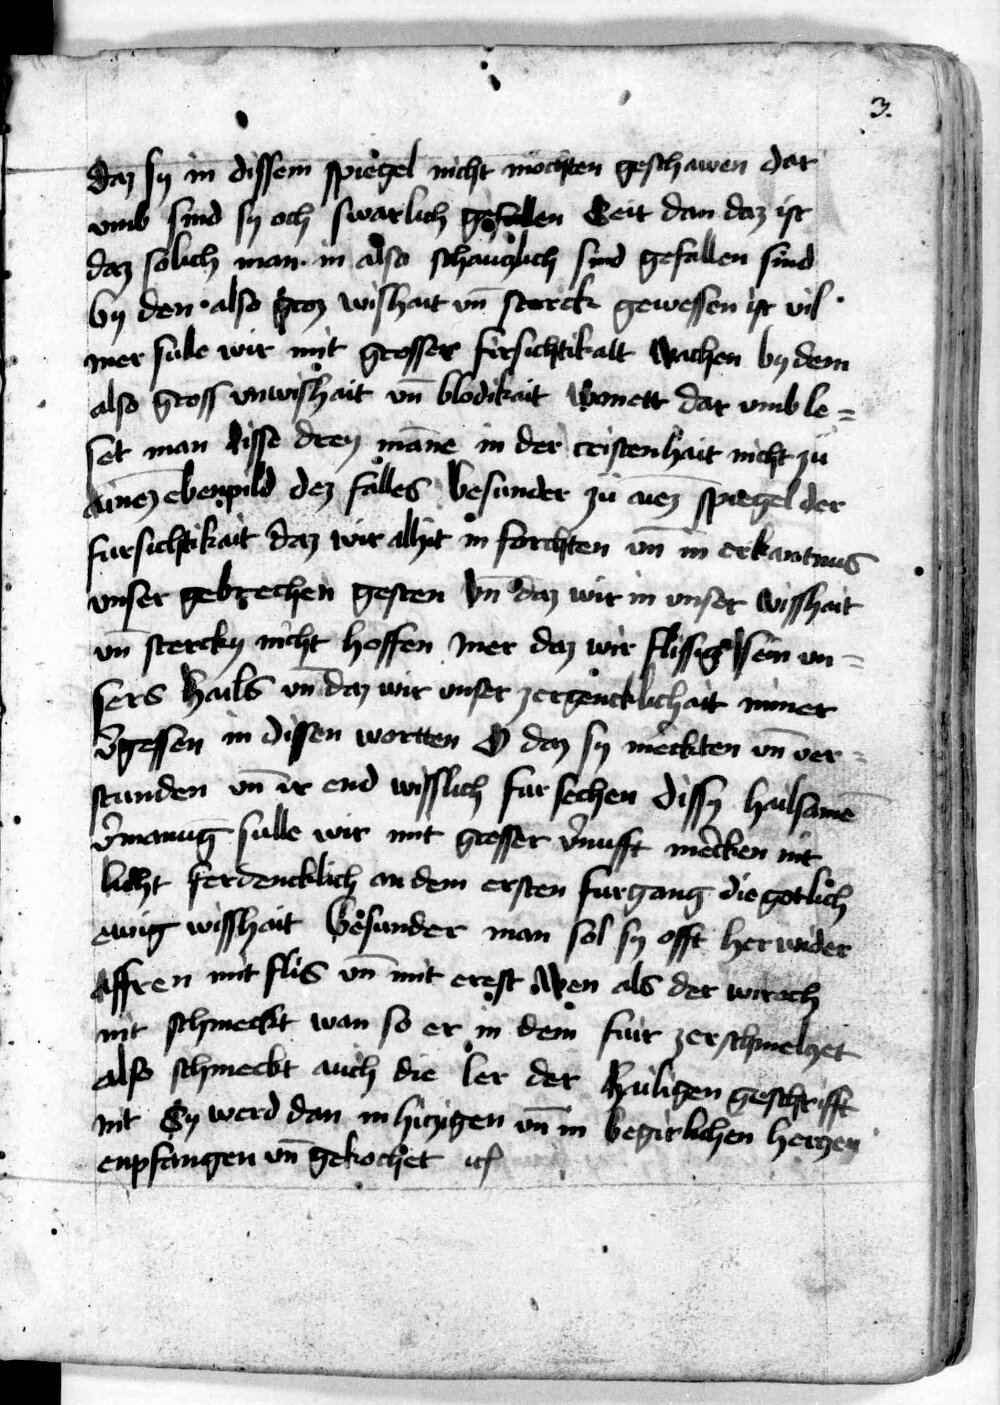 3.
daz sy in dissem spiegel nicht möchten geschawen dar
vmb sind sy och swarlich gefallen Seit dan daz ist
daz sölich man in also schantlich sind gefallen sind
by den also groz wishait vn̄ sterck gewessen ist vil
mer sülle wir mit grosser fürsichtikait wachen by dem
also gross vnwishait vn̄ blödikait wonett dar vmb le=
set man disse drey mane in der cristenhait nicht zü
ainez ebenpild dez falles besunder zü ainez spiegel der
fürsichtikait daz wir allzit in forchten vn̄ in erkantnus
vnser gebrechen gesten vn̄ daz wir in vnser wisshait
vn̄ stercky nicht hoffen mer daz wir flissig sein vn=
sers hails vn̄ daz wir vnser zergencklichait nimer
v̄gessen in dissen wortten O daz sy merckten vn̄ ver=
stunden vn̄ ir end wisslich für sechen dissy hailsame
v̄manūg sülle wir mit grosser v̄nufft mercken nit
licht ferdencklich an dem ersten fürgang die götlich
ewig wisshait besunder man sol sy offt her wider
affren mit flis vn̄ mit erest Wen als der wiroch
nit schmeckt wan so er in dem für zerschmelzet
also schmeckt auch die ler der hailigen geschrifft
nit Sy werd dan in hiczigen vn̄ in begirlichen herczen
enpfangen vn̄ gekochet